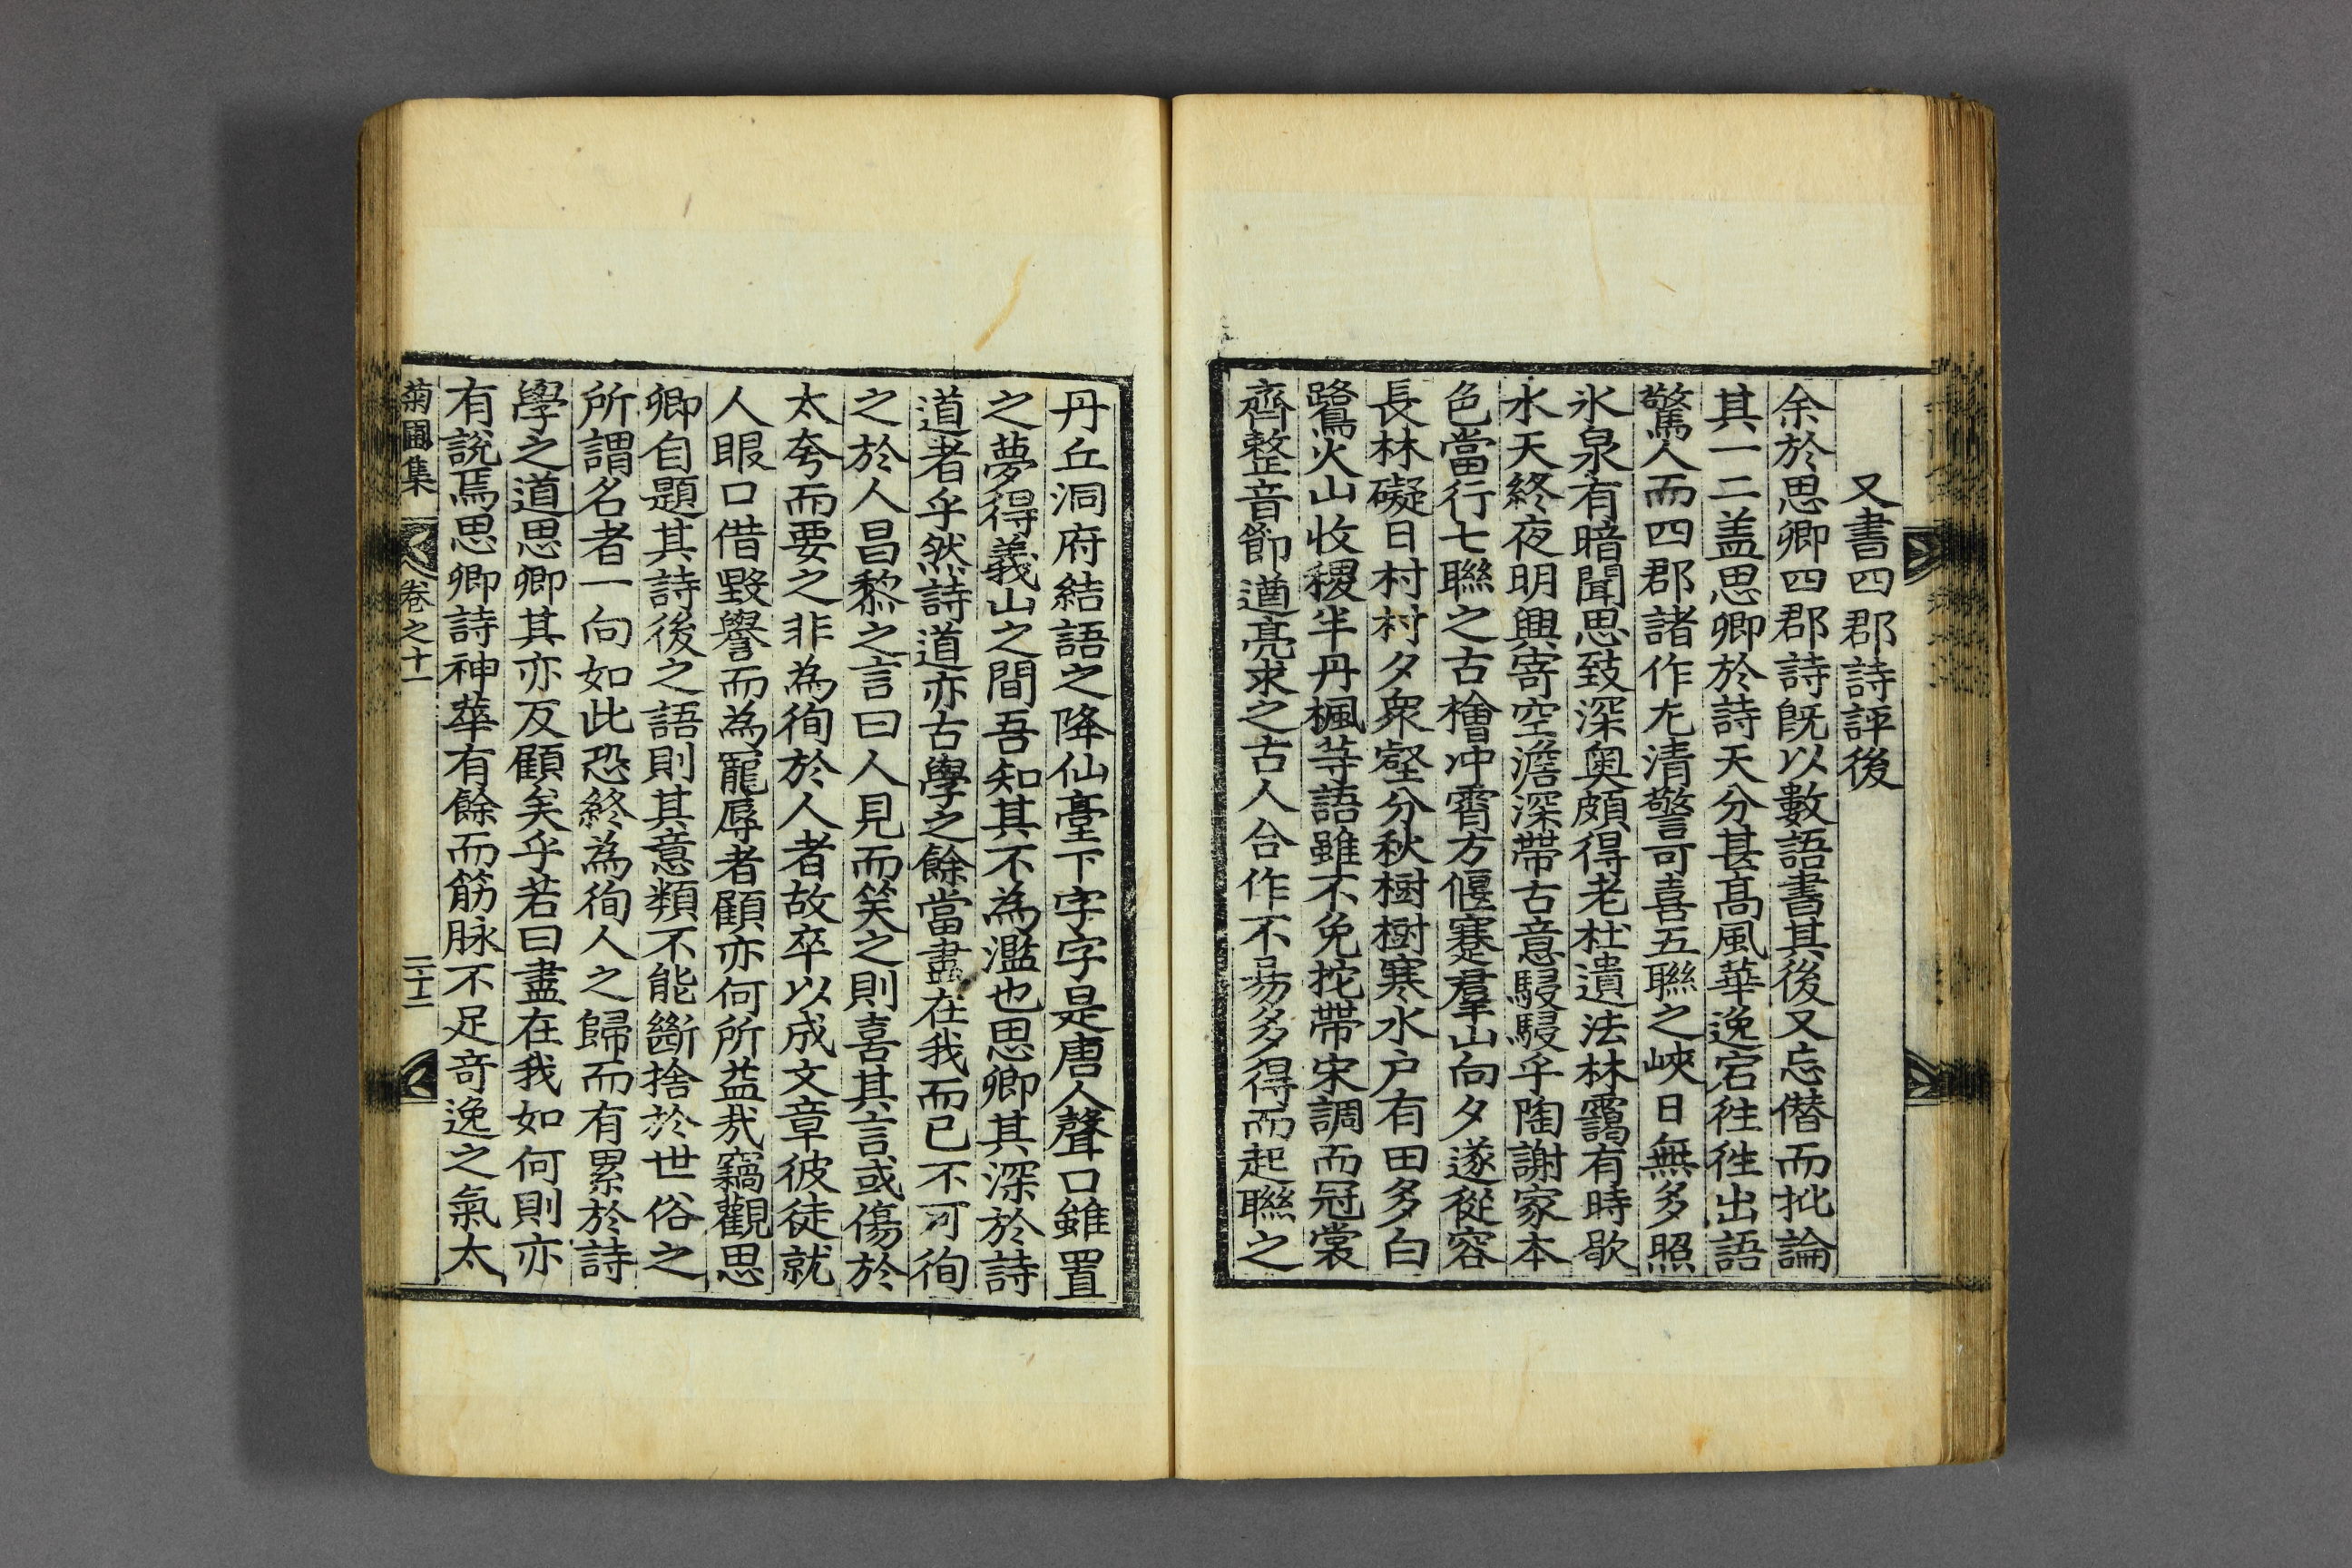 又書四郡詩評後
余於思卿四郡詩旣以數語書其後又忘僭而批論
其一二盖思卿於詩天分甚高風華逸宕徃徃出語
驚人而四郡諸作尢清警可喜五聯之峽日無多照
氷泉有暗聞思致深奧頗得老杜遺法林靄有時歇
水天終夜明興寄空澹深帶古意駸駸乎陶謝家本
色當行七聯之古檜冲霄方偃蹇羣山向夕遂從容
長林礙日村村夕衆壑分秋樹樹寒水户有田多白
鷺火山收稷半丹楓等語雖不免拕帶宋調而冠裳
齊整音節遒亮求之古人合作不昜多得而起聯之
丹丘洞府結語之降仙臺下字字是唐人聲口雖置
之夢得義山之間吾知其不為濫也思卿其深於詩
道者乎然詩道亦古學之餘當盡在我而已不可徇
之於人昌黎之言曰人見而笑之則喜其言或傷於
太夸而要之非為徇於人者故卒以成文章彼徒就
人眼口借毀譽而為寵辱者顧亦何所益㢤竊觀思
卿自題其詩後之語則其意類不能斷捨於世俗之
所謂名者一向如此恐終為徇人之歸而有累於詩
學之道思卿其亦反顧矣乎若曰盡在我如何則亦
有說焉思卿詩神華有餘而筋脉不足竒逸之氣太
菊圃集 卷之十一 二十二